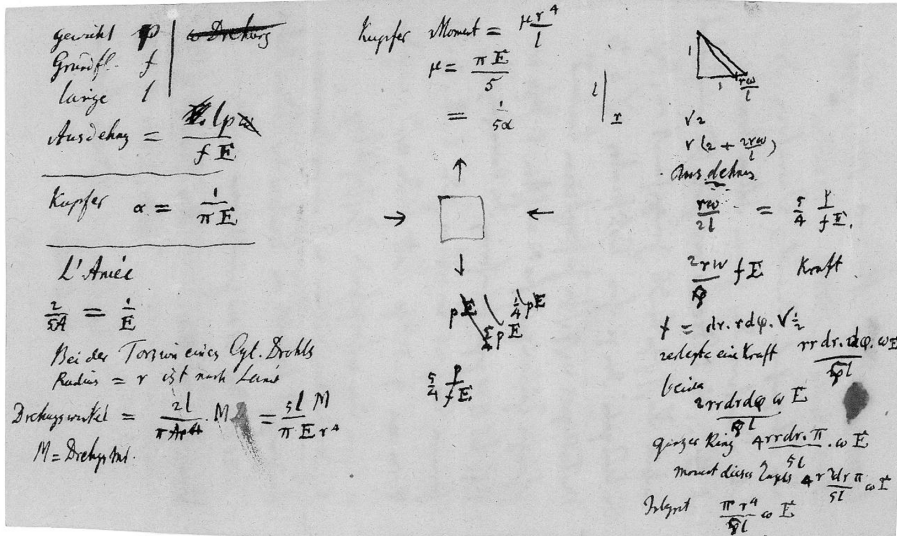 gewicht p
Grundfl. f
länge l
Ausdehng = lp / f E
Kupfer α = 1 / π E
2 / 5A = 1 / E
Bei der Torsion eines Cyl. Drahts
Radius = r ist nach
Drehungswinkel = 2l / π · M = 5l M / π E r⁴
M = Drehgs
Kupfer Moment = μ r⁴ / l
μ = π E / 5
= 1 / 5α
l
r
p E 1/4 p E
5/4 p E
5/4 p / f E
1
1 rω / l
√2
√(2 + 2rω / l)
Ausdehng
rω / 2l = 5/4 p / f E.
2rω / 5l f E Kraft
f = dr. rdφ. √½
zerlegte eine Kraft rrdr.dφ.ωE / 5l
2rrdrdφ ω E / 5l
ganzer Ring 4rrdr.π / 5l . ω E
moment dieser
π r⁴ / 5l ω E